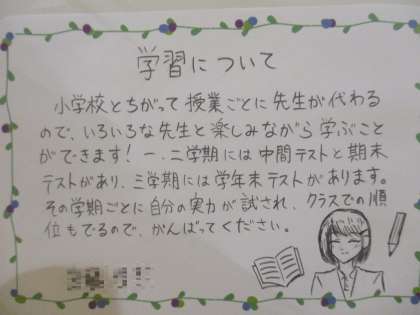 学習について
小学校とちがって授業ごとに先生が代わる
ので、いろいろな先生と楽しみながら学ぶこと
ができます！一、二学期には中間テストと期末
テストがあり、三学期には学年末テストがあります。
その学期ごとに自分の実力が試され、クラスでの順
位もでるので、がんばってください。